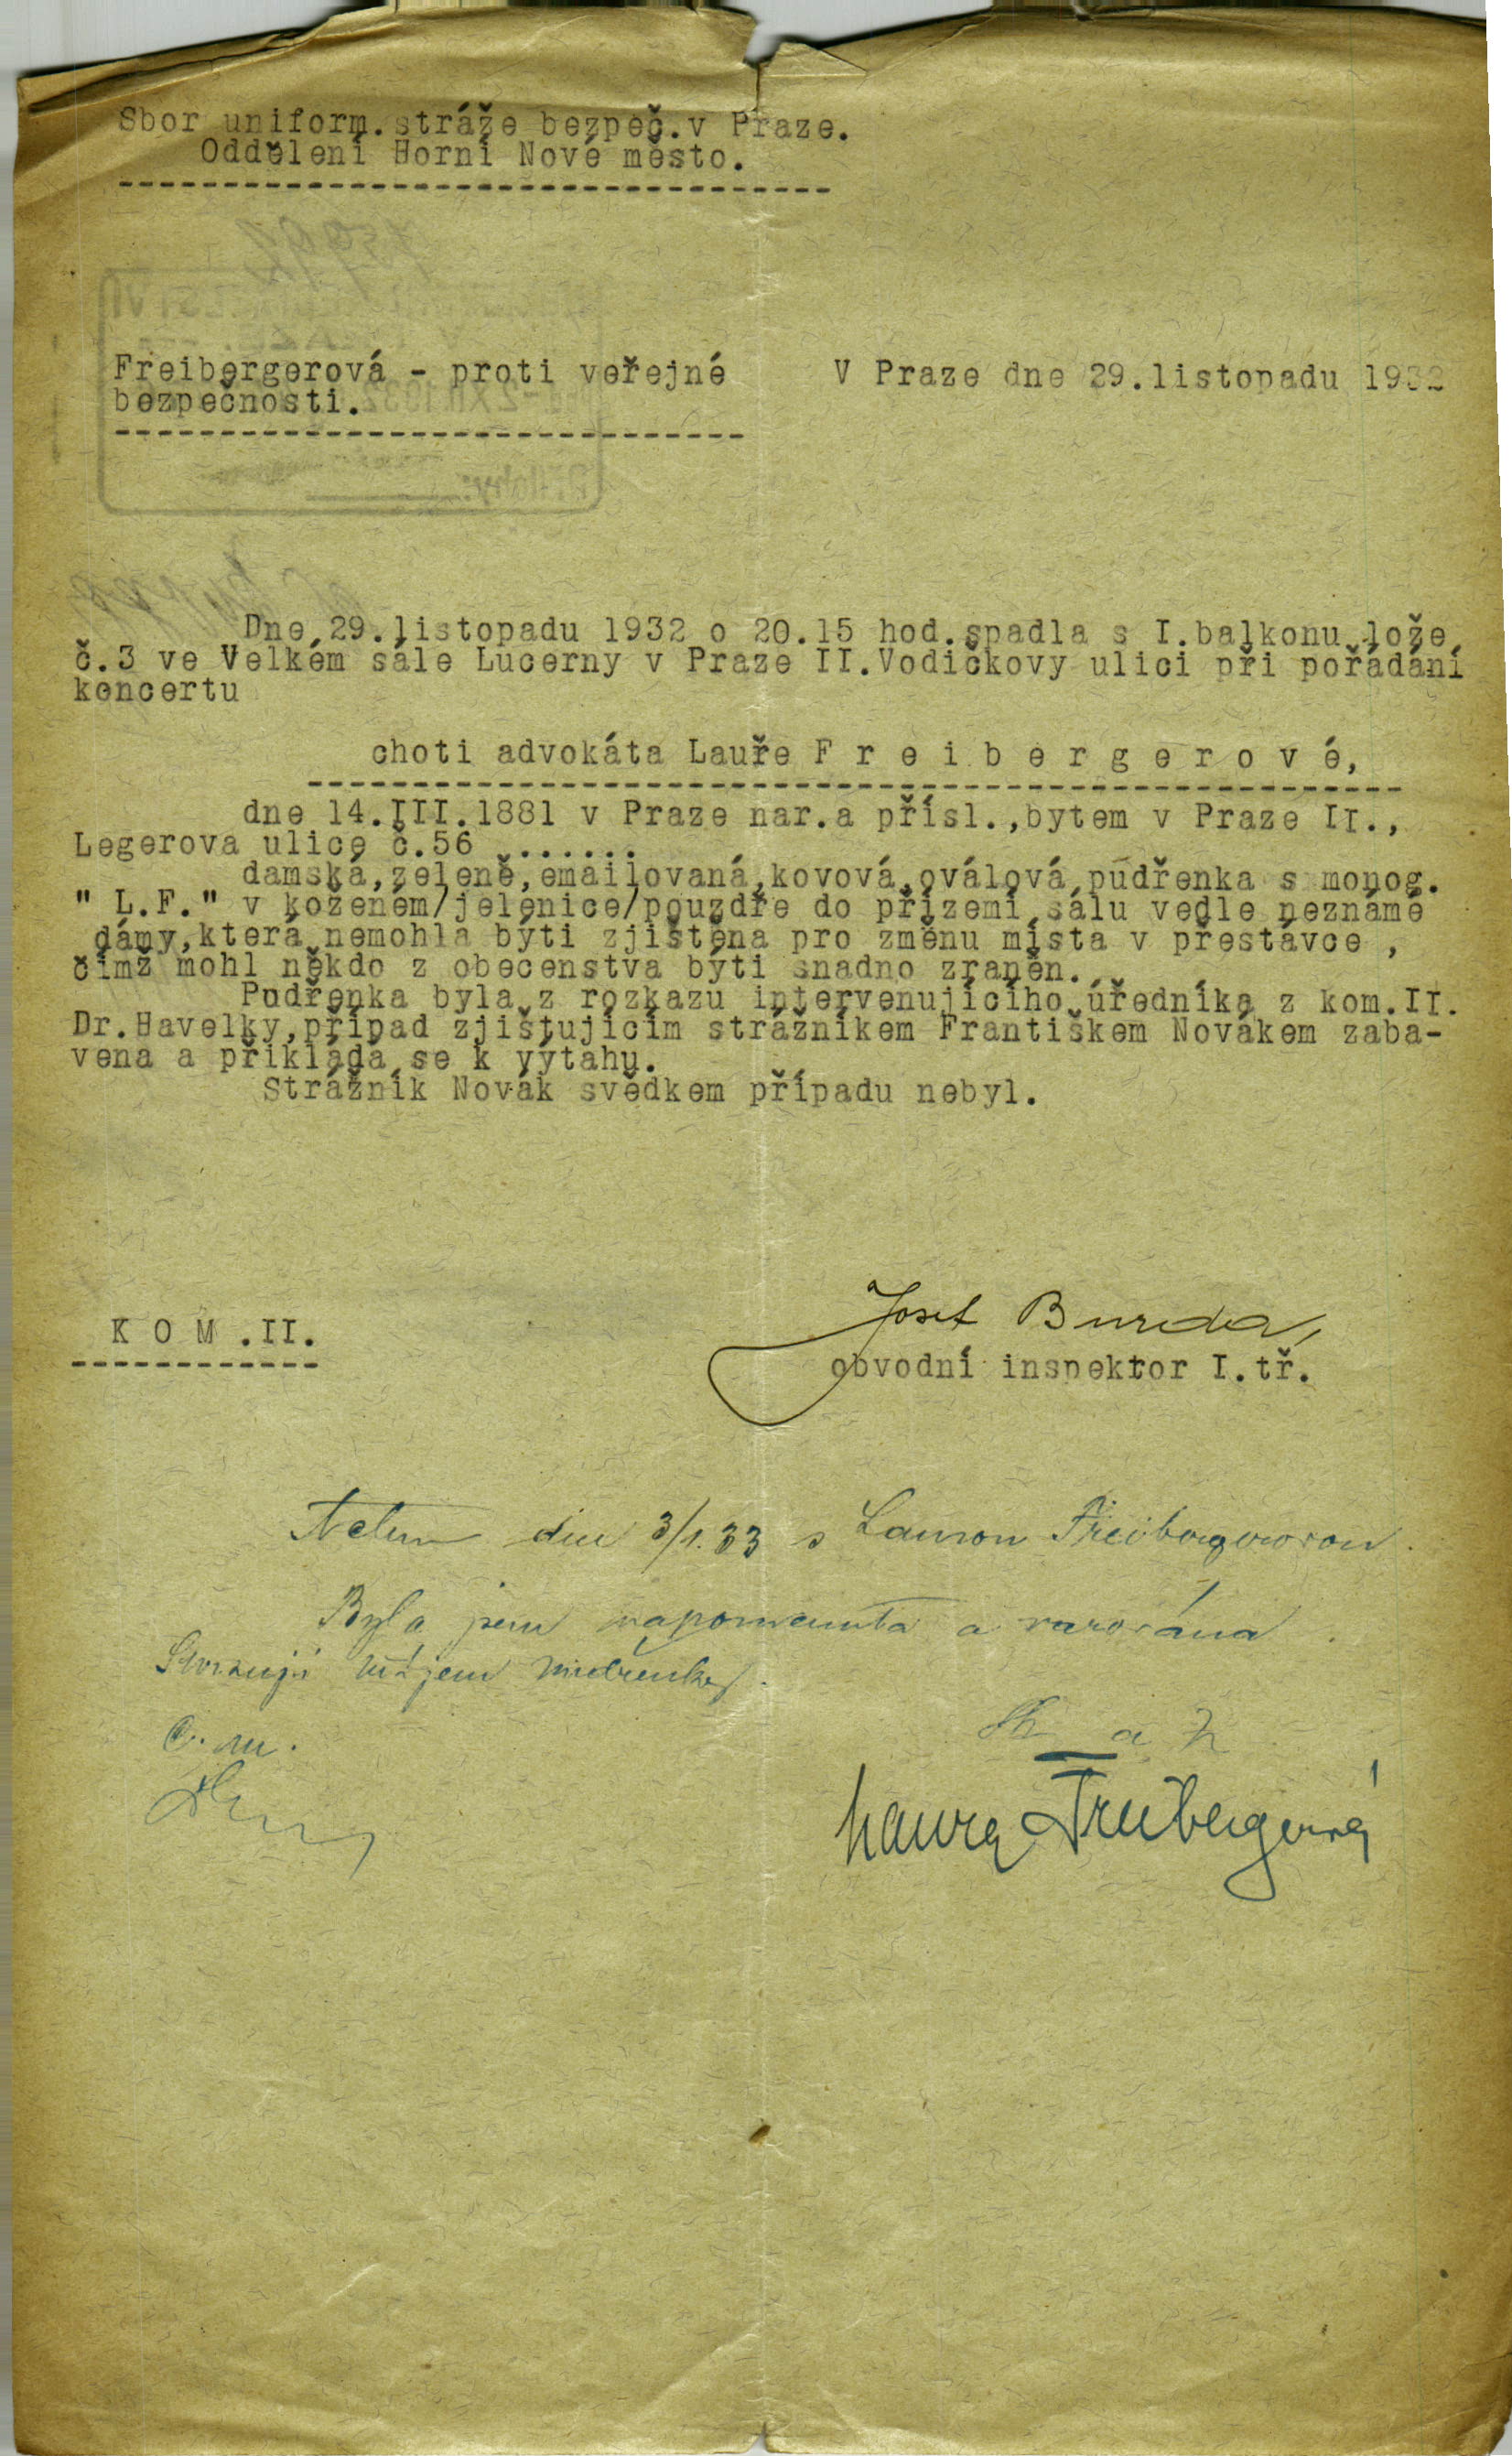 Sbor uniform.stráže bezpeč.v Praze.
Oddělení Horní Nové město.
Freibergerová - proti veřejné
bezpečnosti.
V Praze dne 29.listopadu 1932
Dne 29.listopadu 1932 o 20.15 hod.spadla s I.balkonu lože
č.3 ve Velkém sále Lucerny v Praze II.Vodičkovy ulici při pořádání
koncertu
choti advokáta Lauře F r e i b e r g e r o v é,
dne 14.III.1881 v Praze nar.a přísl.,bytem v Praze II.,
Legerova ulice č.56 ......
damská,zeleně,emailovaná,kovová,oválová pudřenka s monog.
" L.F." v koženém/jelenice/pouzdře do přízemí sálu vedle neznámé
dámy,která nemohla býti zjištěna pro změnu místa v přestávce ,
čímž mohl někdo z obecenstva býti snadno zraněn.
Pudřenka byla z rozkazu intervenujícího úředníka z kom.II.
Dr.Havelky,případ zjišťujícím strážníkem Františkem Novákem zaba-
vena a přikládá se k výtahu.
Strážník Novák svědkem případu nebyl.
K O M .II.
Josef Burda,
obvodní inspektor I.tř.
dne 3/1.33 s Laurou Freibergerovou.
Byla jsem napomenuta a varována.
Stvrzuji příjem pudřenky.
Laura Freibergerová